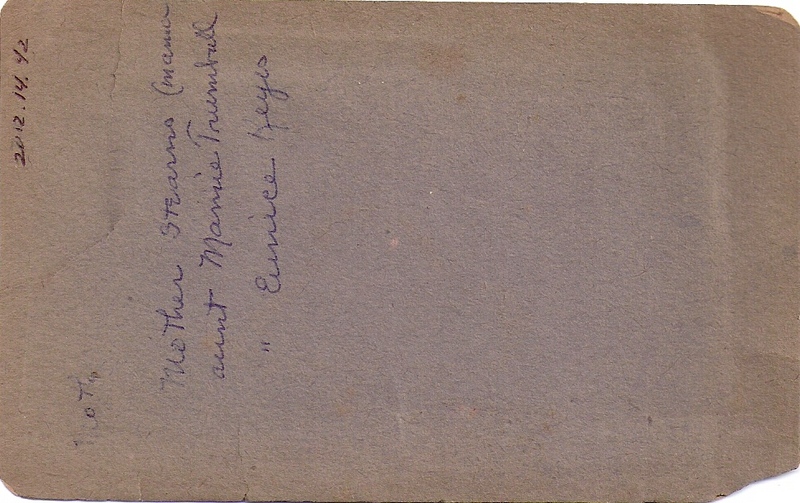 2012.14.42
Mother Stearns (mamie
aunt Mamie Trumbull
" Eunice Keyes